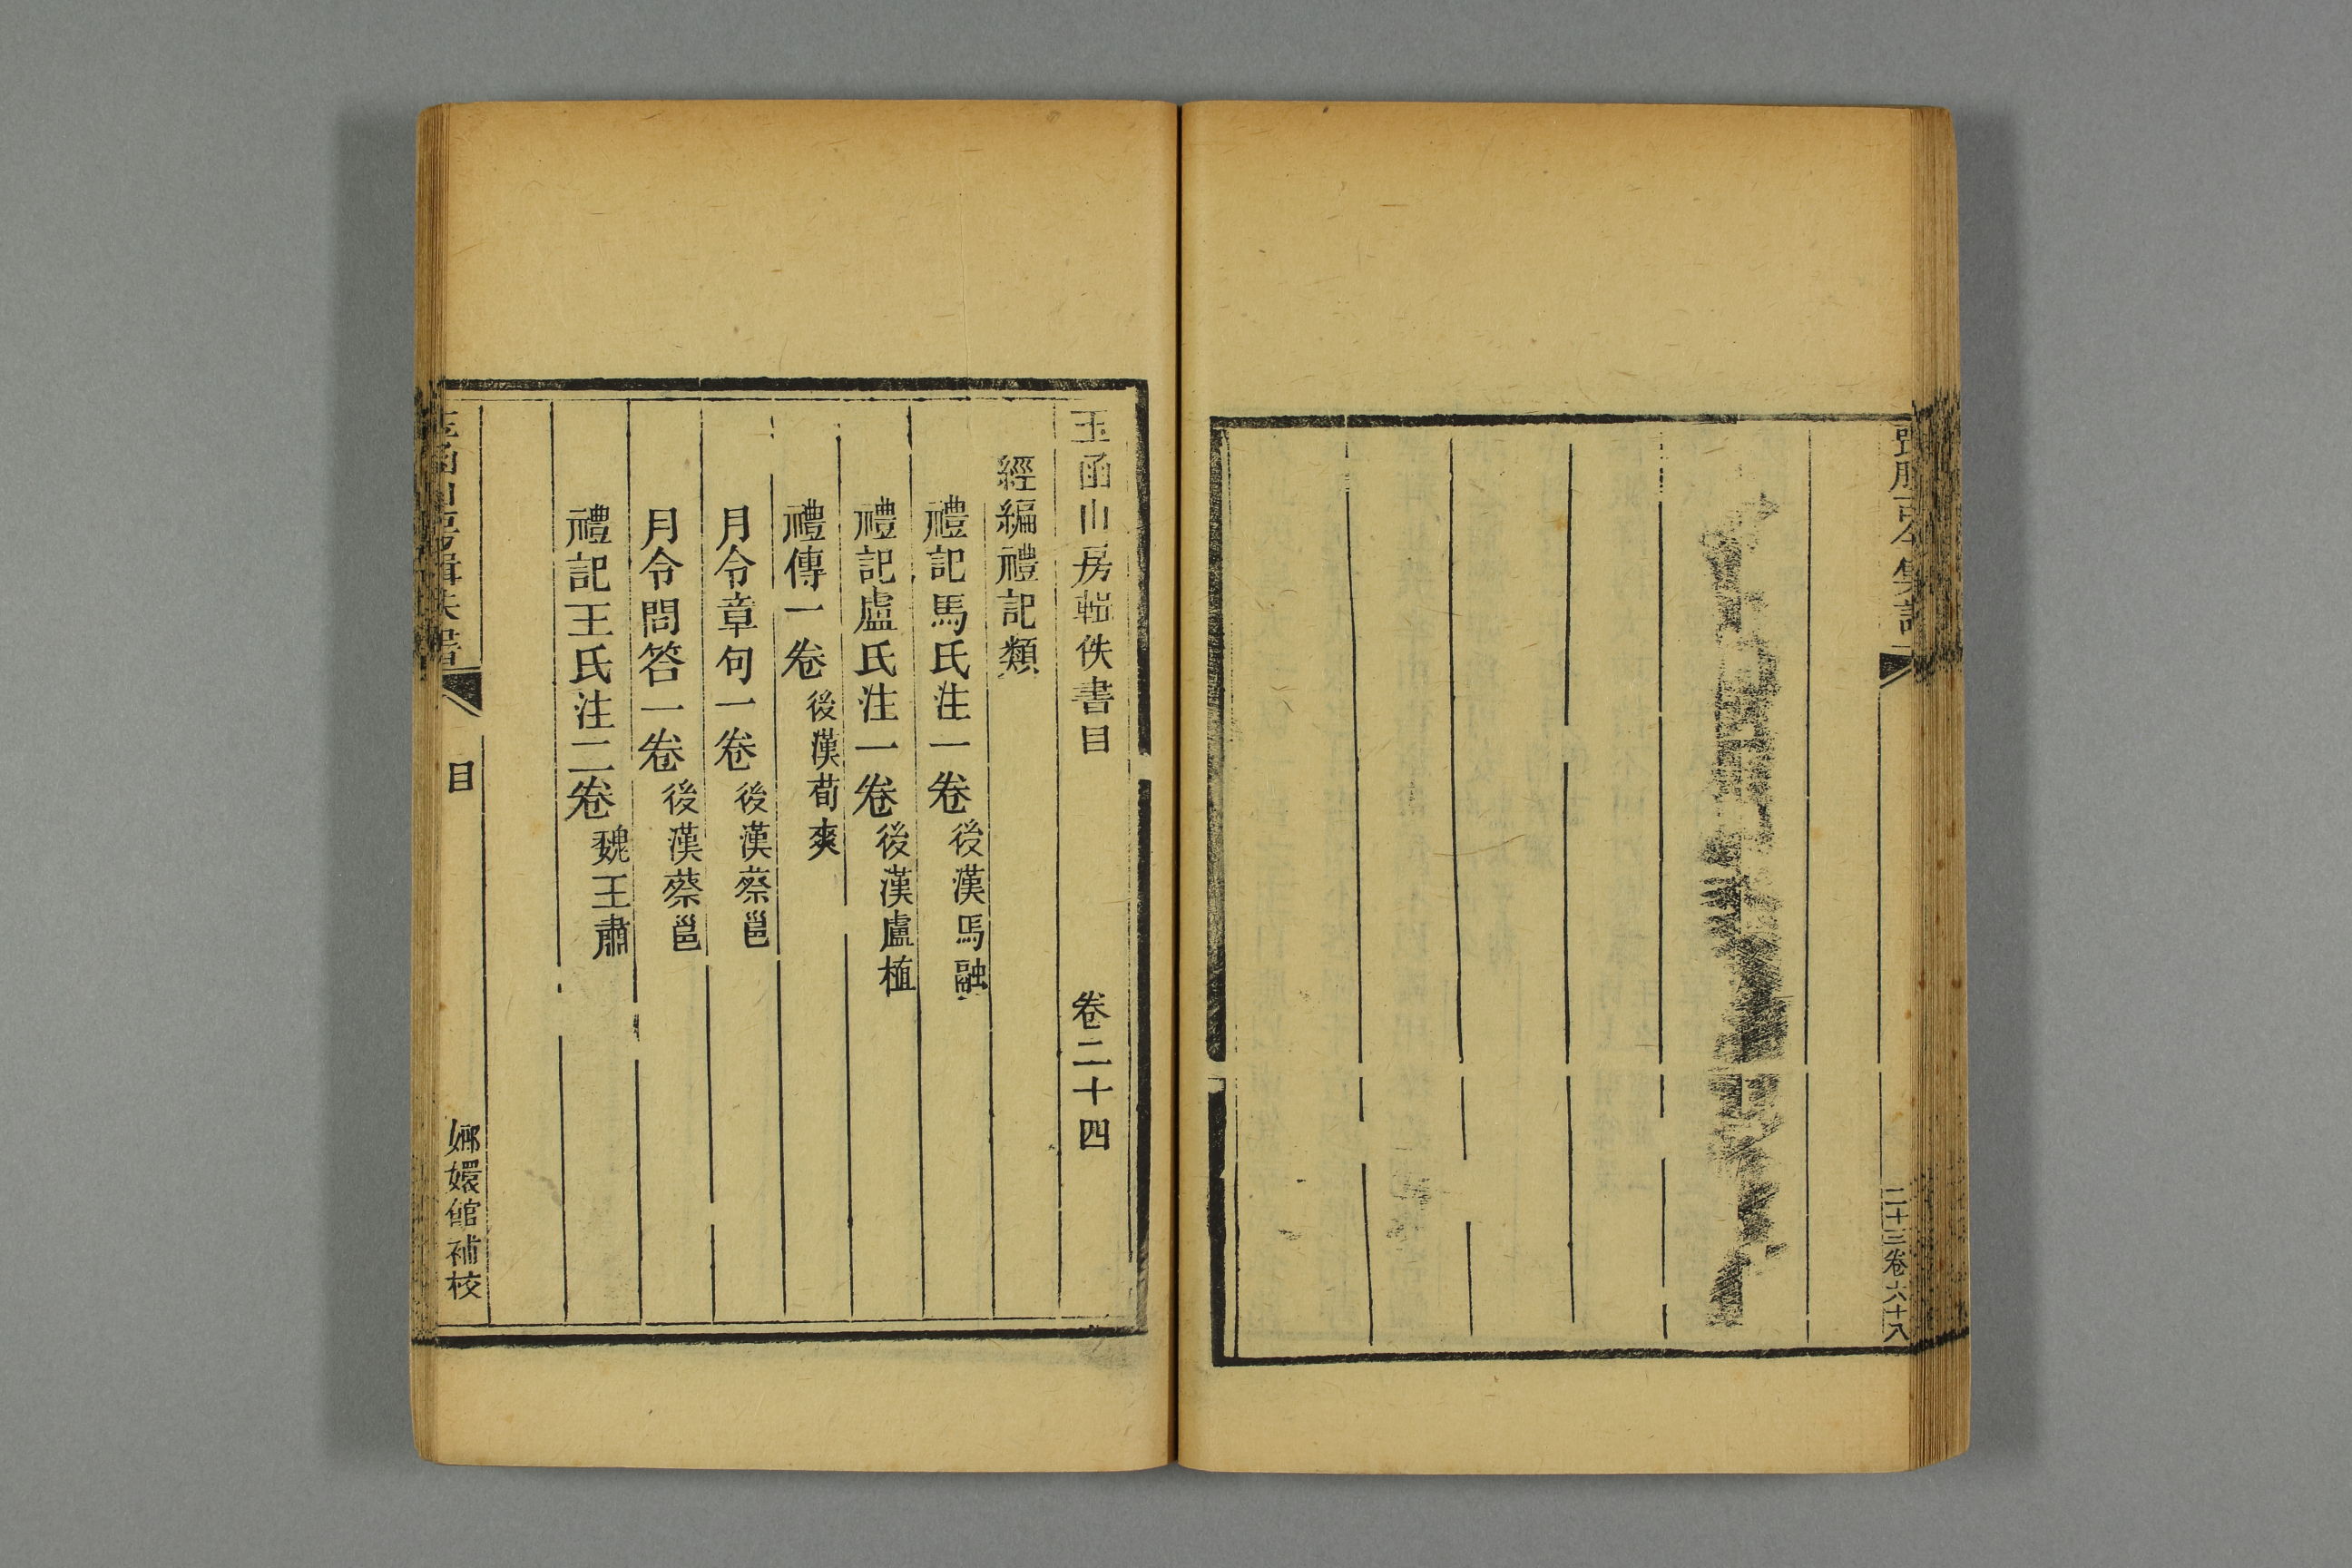 二十三卷六十八
玉函山房輯佚書目 卷二十四
經編禮記類
禮記馬氏注一卷 後漢馬融
禮記盧氏注一卷 後漢盧植
禮傳一卷 後漢荀爽
月令章句一卷 後漢蔡邕
月令問答一卷 後漢蔡邕
禮記王氏注二卷 魏王肅
玉函山房輯佚書 目 嫏嬛館補校